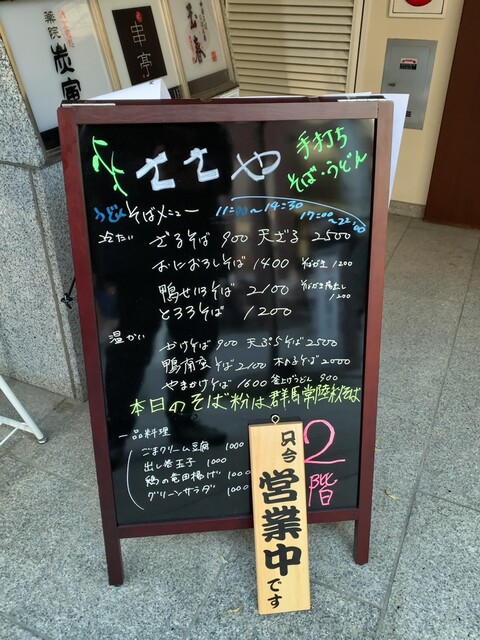 薬院
炭寅
串亭
ささや
手打ち
そば・うどん
うどん そばメニュー
11:00~14:30
17:00~22:00
冷たい
ざるそば 900 天ざる 2500
おにおろしそば 1400 そばがき 1200
鴨せいろそば 2100
1200
とろろそば 1200
温かい
かけそば 900 天ぷらそば 2500
鴨南蛮そば 2100 木の子そば 2000
やまかけそば 1600 釜上げうどん 900
本日のそば粉は群馬常陸秋そば
一品料理
ごまクリーム豆腐 1000
出し巻玉子 1000
鶏の竜田揚げ 1000
グリーンサラダ 1000
2階
只今
営業中
です